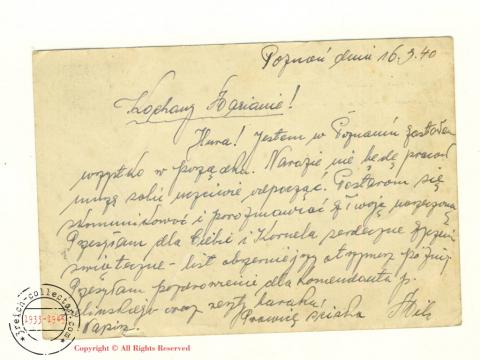 Poznań dnia 16.3.40
Kochany Marianie!
Hura! Jestem w Poznaniu zastałem
wszystko w porządku. Narazie nie będę pracował
muszę sobie uczciwie odpocząć. Postaram się
skomunikować i porozmawiać z Twoją narzeczoną
Przesyłam dla Ciebie i Kornela serdeczne życzenia
świąteczne - list obszerniejszy otrzymasz później
Przesyłam pozdrowienie dla Komendanta p.
lińskiego oraz reszty baraku.
Napisz. Prawicę ściska
3reich-collector.com
1933-1945
Copyright © All Rights Reserved